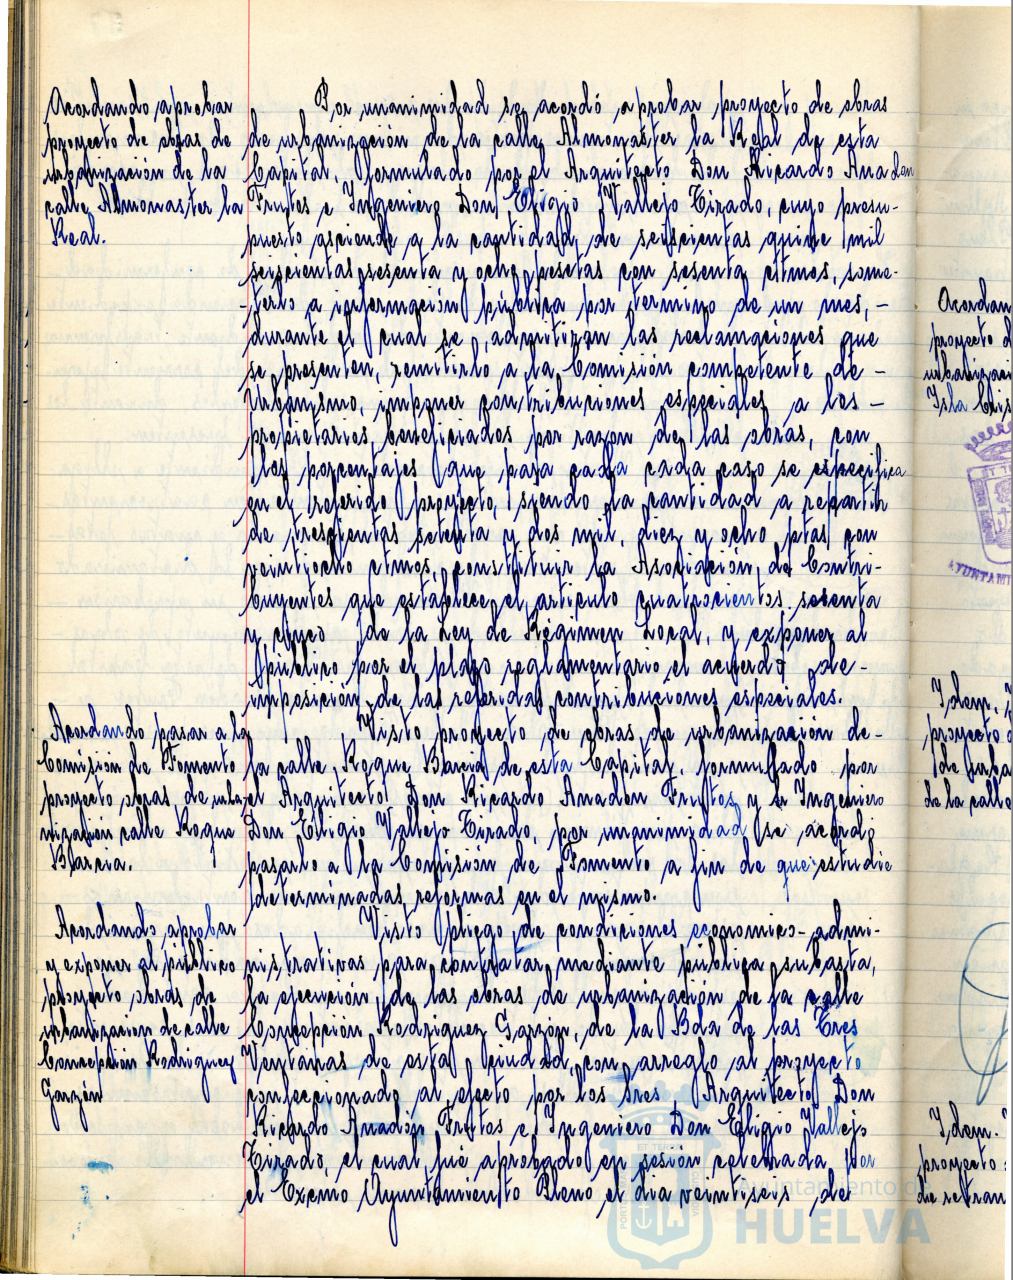 Acordando aprobar
proyecto de obras de
urbanización de la
calle Almonaster la
Real.
Por unanimidad se acordó aprobar proyecto de obras
de urbanización de la calle Almonaster la Real de esta
Capital, formulado por el Arquitecto Don Ricardo Anadon
Frutos e Ingeniero Don Eligio Vallejo Tirado, cuyo presu-
puesto asciende a la cantidad de seiscientas quince mil
seiscientas sesenta y ocho pesetas con sesenta ctmos, some-
terlo a información pública por termino de un mes, -
durante el cual se admitiran las reclamaciones que
se presenten, remitirlo a la Comisión competente de -
Urbanismo, imponer contribuciones especiales a los -
propietarios beneficiados por razon de las obras, con
los porcentajes que para cada cada caso se especifica
en el referido proyecto, siendo la cantidad a repartir
de trescientas setenta y dos mil, diez y ocho ptas con
veintiocho ctmos, constituir la Asociación de Contri-
buyentes que establece el articulo cuatrocientos sesenta
y cinco de la Ley de Régimen Local, y exponer al
público por el plazo reglamentario el acuerdo de -
imposición de las referidas contribuciones especiales.
Acordando pasar a la
Comisión de Fomento
proyecto obras de urba-
nización calle Roque
Barcia.
Visto proyecto de obras de urbanización de-
la calle Roque Barcia de esta Capital, formulado por
el Arquitecto Don Ricardo Anadón Frutos y el Ingeniero
Don Eligio Vallejo Tirado, por unanimidad se acordó
pasarlo a la Comisión de Fomento a fin de que estudie
determinadas reformas en el mismo.
Acordando aprobar
y exponer al público
proyecto obras de
urbanización de calle
Concepción Rodriguez
Garzón
Visto pliego de condiciones economico-admi-
nistrativas para contratar mediante pública subasta,
la ejecución de las obras de urbanización de la calle
Concepción Rodriguez Garzón, de la Bda de las Tres
Ventanas de esta ciudad, con arreglo al proyecto
confeccionado al efecto por los Sres Arquitecto Don
Ricardo Anadón Frutos e Ingeniero Don Eligio Vallejo
Tirado, el cual fué aprobado en sesión celebrada por
el Excmo Ayuntamiento Pleno el dia veintiseis de
Acordan
proyecto d
urbanizaci
Isla Cris
Idem.
proyecto
de urba
de la calle
Idem.
proyecto
de
AYUNTAMI
Ayuntamiento de
HUELVA